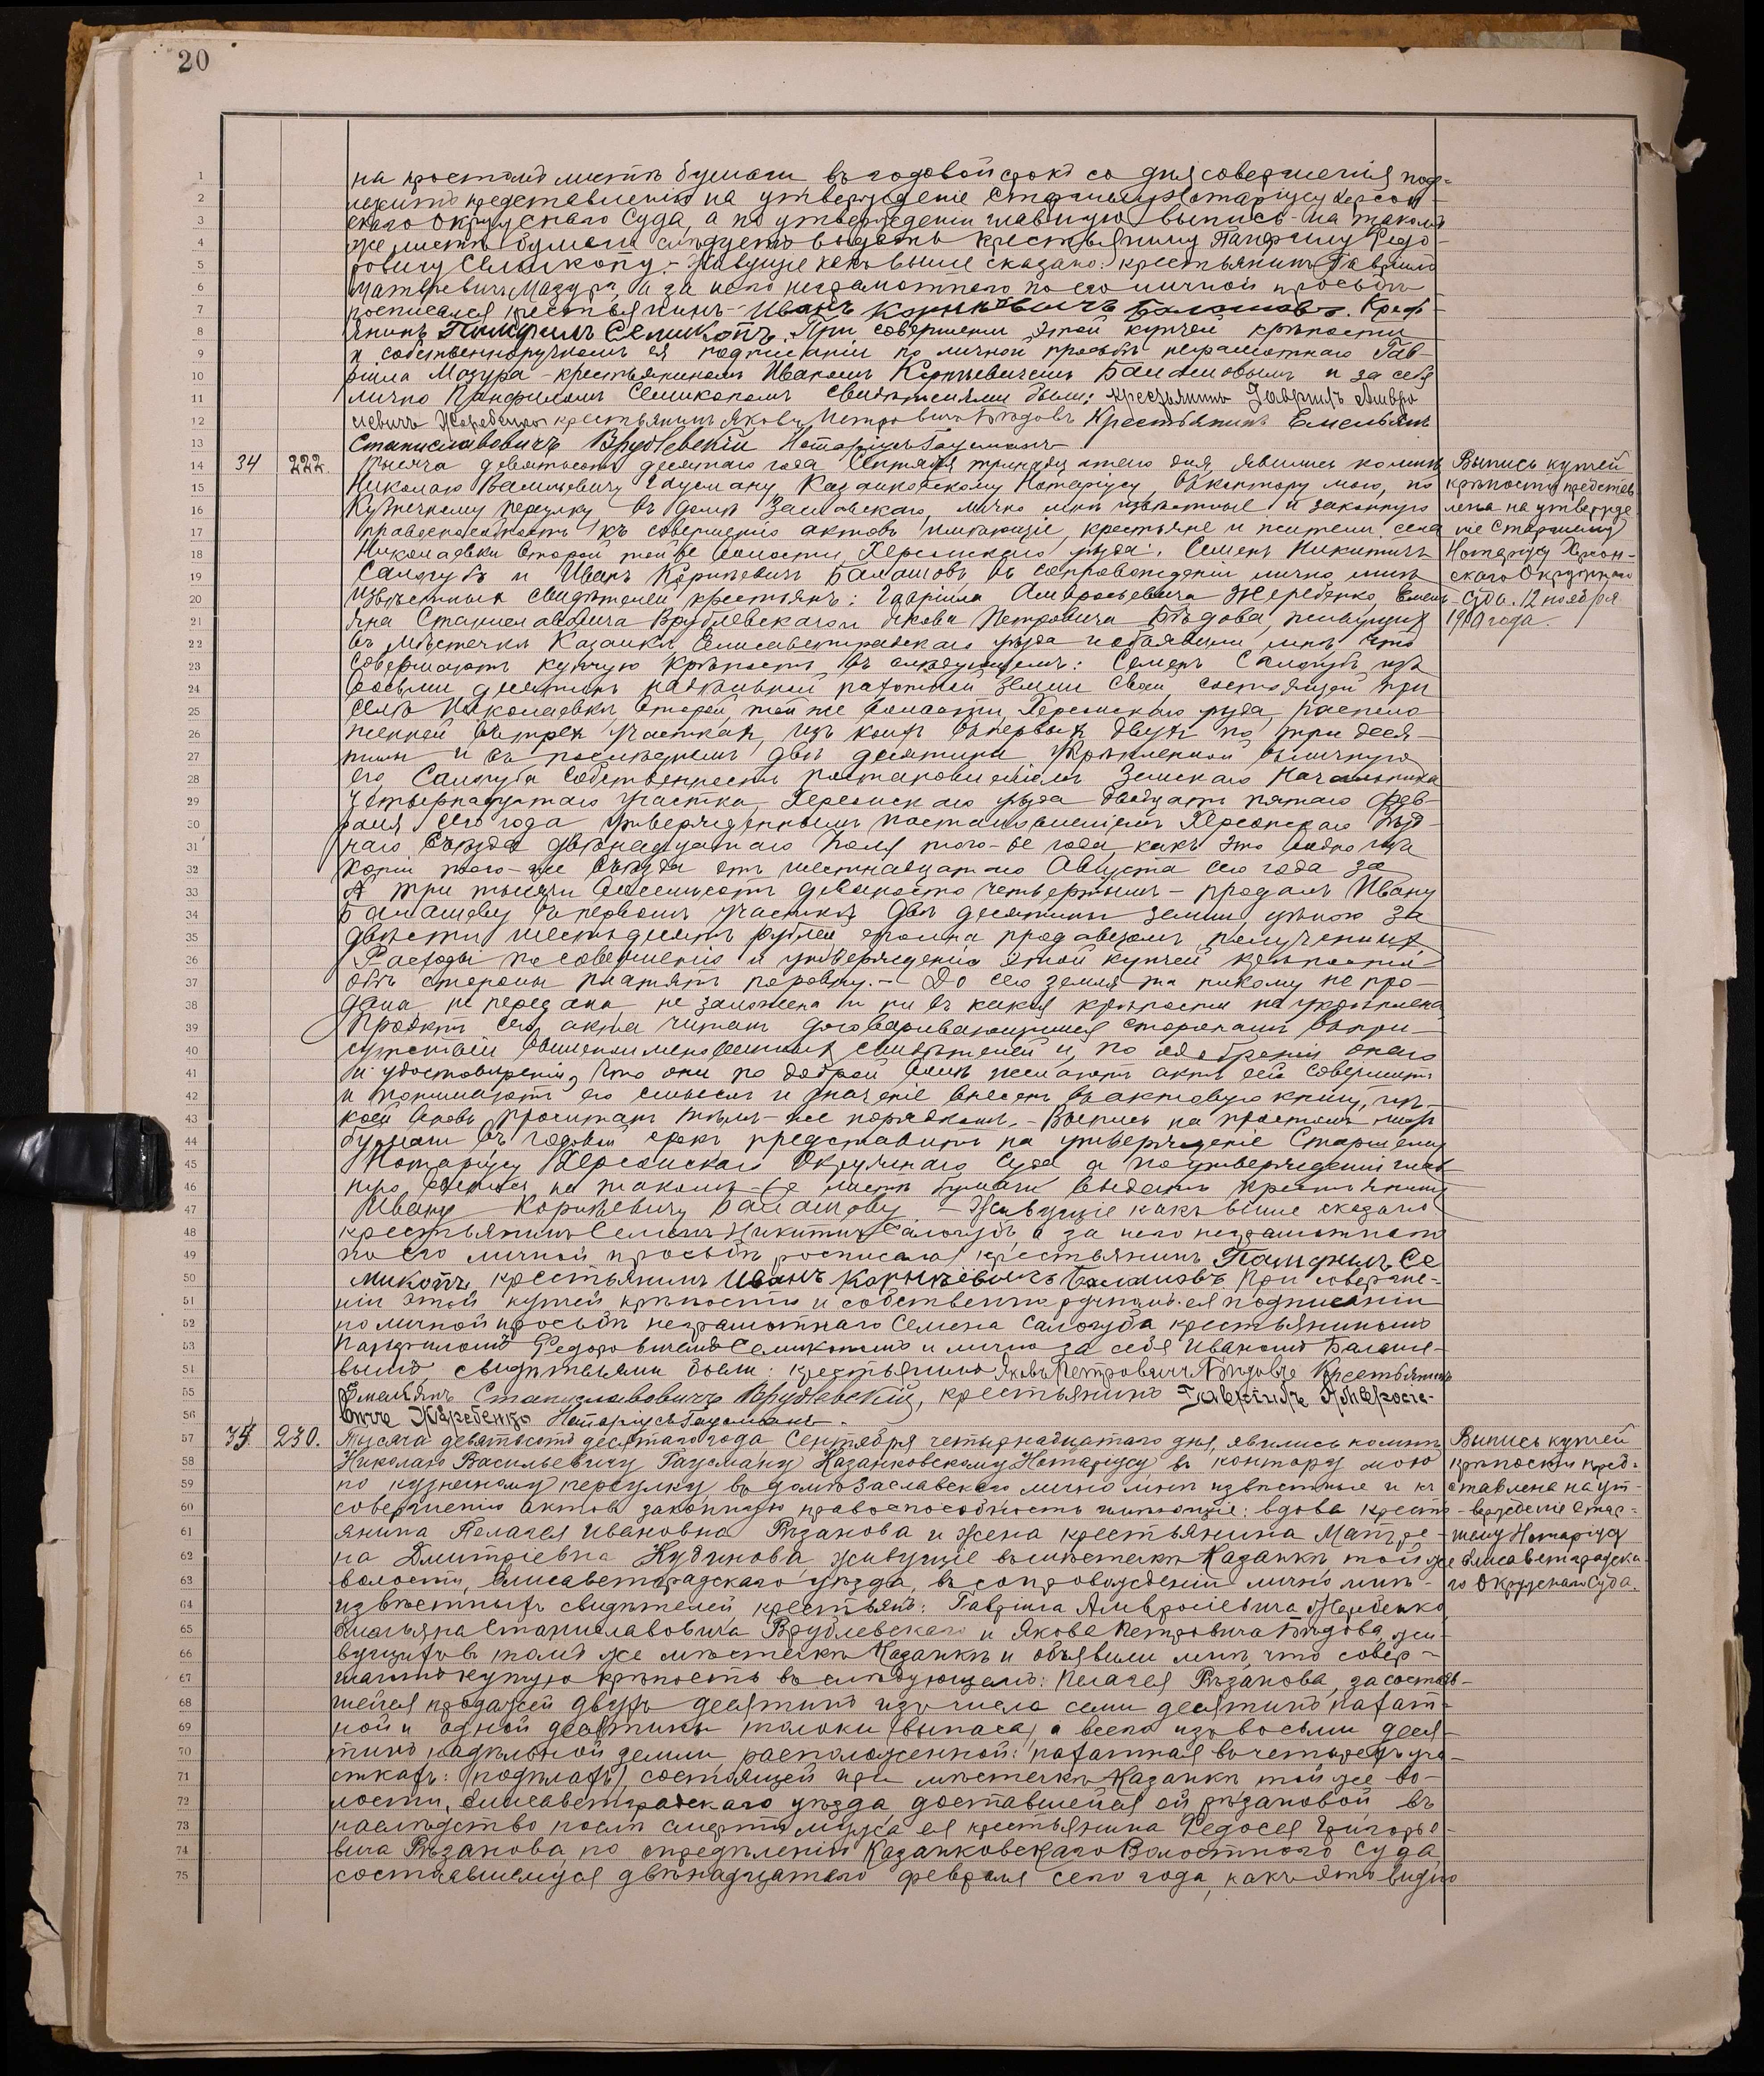 20
на простомъ листѣ бумаги въ годовой срокъ со дня совершенія под-
лежитъ представленію на утвержденіе Старшему Нотаріусу Херсон-
скаго Окружнаго Суда, а по утвержденіи главную выпись на такомъ
же листѣ бумаги слѣдуетъ выдать крестьянину Панфилу Федо-
ровичу Семикопу. – Живущіе какъ выше сказано: крестьянинъ Гавріилъ
Матвѣевичъ Мазура, а за него неграмотнаго по его личной просьбѣ
росписался крестьянинъ Иванъ Корнѣевичъ Балашовъ. Крест-
янинъ Памфилъ Семикопъ. При совершеніи этой купчей крѣпости
и собственноручномъ ея подписаніи по личной просьбѣ неграмотнаго Гав-
ріила Мазура – крестьяниномъ Иваномъ Корнѣевичемъ Балашовымъ и за себя
лично Панфиломъ Семикопомъ свидѣтелями были: крестьянинъ Гавріилъ Амвро
сіевичъ Жеребенко крестьянинъ Яковъ Петровичъ Бѣдовъ Крестьянинъ Емельянъ
Станиславовичъ Врублевскій Нотаріусъ Гаусманъ
34 222. Тысяча девятьсотъ десятаго года, Сентября тринадцатаго дня, явились ко мнѣ
Николаю Васильевичу Гаусману Казанковскому Нотаріусу, въ контору мою, по
Кузнечному переулку въ домѣ Заславскаго, лично мнѣ извѣстные и законную
правоспособность къ совершенію актовъ имѣющіе, крестьяне и жители села
Николаевки Второй той же волости, Херсонскаго уѣзда: Семенъ Никитичъ
Салогубъ и Иванъ Корнѣевичъ Балашовъ, въ сопровожденіи лично мнѣ
извѣстныхъ свидѣтелей крестьянъ: Гавріила Амвросьевича Жеребенко, Емель-
яна Станиславовича Врублевскаго и Якова Петровича Бѣдова, живущихъ
въ мѣстечкѣ Казанкѣ, Елисаветградскаго уѣзда и объявили мнѣ, что
совершаютъ купчую крѣпость въ слѣдующемъ: Семенъ Салогубъ изъ
восьми десятинъ надѣльной пахотной земли своей, состоящей при
селѣ Николаевкѣ Второй, той же волости, Херсонскаго уѣзда, располо
женной въ трехъ участкахъ, изъ коихъ въ первыхъ двухъ по три деся-
тины и въ послѣднемъ двѣ десятины укрѣпленной въ личную
его, Салогуба собственность постановленіемъ Земскаго Начальника
Четырнадцатаго участка, Херсонскаго уѣзда двадцать пятаго Фев-
раля сего года утвержденнымъ постановленіемъ Херсонскаго Уѣзд-
наго Съѣзда двѣнадцатаго Іюля того-же года, какъ это видно изъ
копіи того-же Съѣзда отъ шестнадцатаго Августа сего года за
№ три тысячи восемьсотъ девяносто четвертымъ – продалъ Ивану
Балашову въ первомъ участкѣ двѣ десятины земли цѣною за
двѣсти шестьдесятъ рублей, сполна продавцомъ полученныхъ
Расходы по совершенію и утвержденію этой купчей крѣпости
обѣ стороны платятъ поровну. – До сего земля та никому не про-
дана, не передана, не заложена и ни въ какія крѣпости не укрѣплена
Проектъ сего акта читанъ договаривающимся сторонамъ въ при-
сутствіи вышепоименованныхъ свидѣтелей и, по одобреніи онаго
и удостовѣреніи, что они по доброй волѣ желаютъ актъ сей совершить
и понимаютъ его смыслъ и значеніе внесенъ въ актовую книгу, изъ
коей вновь прочитанъ тѣмъ-же порядкомъ. – Выпись на простомъ листѣ
бумаги въ годовой срокъ представить на утвержденіе Старшему
Нотаріусу Херсонскаго Окружнаго Суда а по утвержденіи глав
ную выпись на такомъ-же листѣ бумаги выдать крестьянину
Ивану Корнѣевичу Балашову – Живущіе какъ выше сказано
крестьянинъ Семенъ Никитичъ Салогубъ, а за него неграмотнаго
по его личной просьбѣ росписался крестьянинъ Памфилъ Се
микопъ, крестьянинъ Иванъ Корнѣевичъ Балашовъ. При соверше-
ніи этой купчей крѣпости и собственноручномъ ея подписаніи
по личной просьбѣ неграмотнаго Семена Салогуба крестьяниномъ
Панфиломъ Федоровичемъ Семикопомъ и лично за себя Иваномъ Балашо-
вымъ, свидѣтелями были: крестьянинъ Яковъ Петровичъ Бѣдовъ Крестьянинъ
Емельянъ Станиславовичъ Врублевскій, крестьянинъ Гавріилъ Амвросіе-
вичъ Жеребенко Нотаріусъ Гаусманъ.
Выпись купчей
крѣпости представ-
лена на утвержде-
ніе Старшему
Нотаріусу Херсон-
скаго Окружнаго
Суда. 12 ноября
1910 года.
35 230. Тысяча девятьсотъ десятаго года, Сентября четырнадцатаго дня, явились ко мнѣ
Николаю Васильевичу Гаусману Казанковскому Нотаріусу, въ контору мою
по кузнечному переулку, въ домѣ Заславскаго лично мнѣ извѣстные и къ
совершенію актовъ законную правоспособность имѣющіе: вдова кресть
янина Пелагея Ивановна Рѣзанова и жена крестьянина Матре-
на Дмитріевна Кудинова, живущіе въ мѣстечкѣ Казанкѣ той же
волости, Елисаветградскаго уѣзда, въ сопровожденіи лично мнѣ
извѣстныхъ свидѣтелей, крестьянъ: Гавріила Амвросіевича Жеребенко,
Емельяна Станиславовича Врублевскаго и Якова Петровича Бѣдова, жи-
вущихъ въ томъ же мѣстечкѣ Казанкѣ и объявили мнѣ, что совер-
шаютъ купчую крѣпость въ слѣдующемъ: Пелагея Рѣзанова, за состояв-
шейся продажей двухъ десятинъ изъ числа семи десятинъ пахат-
ной и одной десятины толоки (выпаса), а всего изъ восьми деся-
тинъ надѣльной земли, расположенной: пахатная въ четырехъ уча-
сткахъ: (подѣлахъ), состоящей при мѣстечкѣ Казанкѣ той же во-
лости, Елисаветградскаго уѣзда, доставшейся ей Рѣзановой, въ
наслѣдство послѣ смерти мужа ея крестьянина Федосея Григорье-
вича Рѣзанова, по опредѣленію Казанковскаго Волостного Суда,
состоявшемуся двѣнадцатаго февраля сего года, какъ это видно
Выпись купчей
крѣпости пред-
ставлена на ут-
вержденіе Стар-
шему Нотаріусу
Елисаветградска-
го Окружнаго Суда.